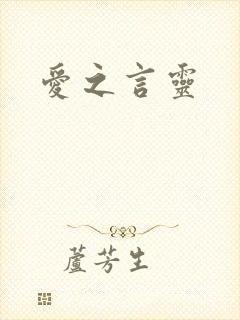 愛之言靈
蘆芳生